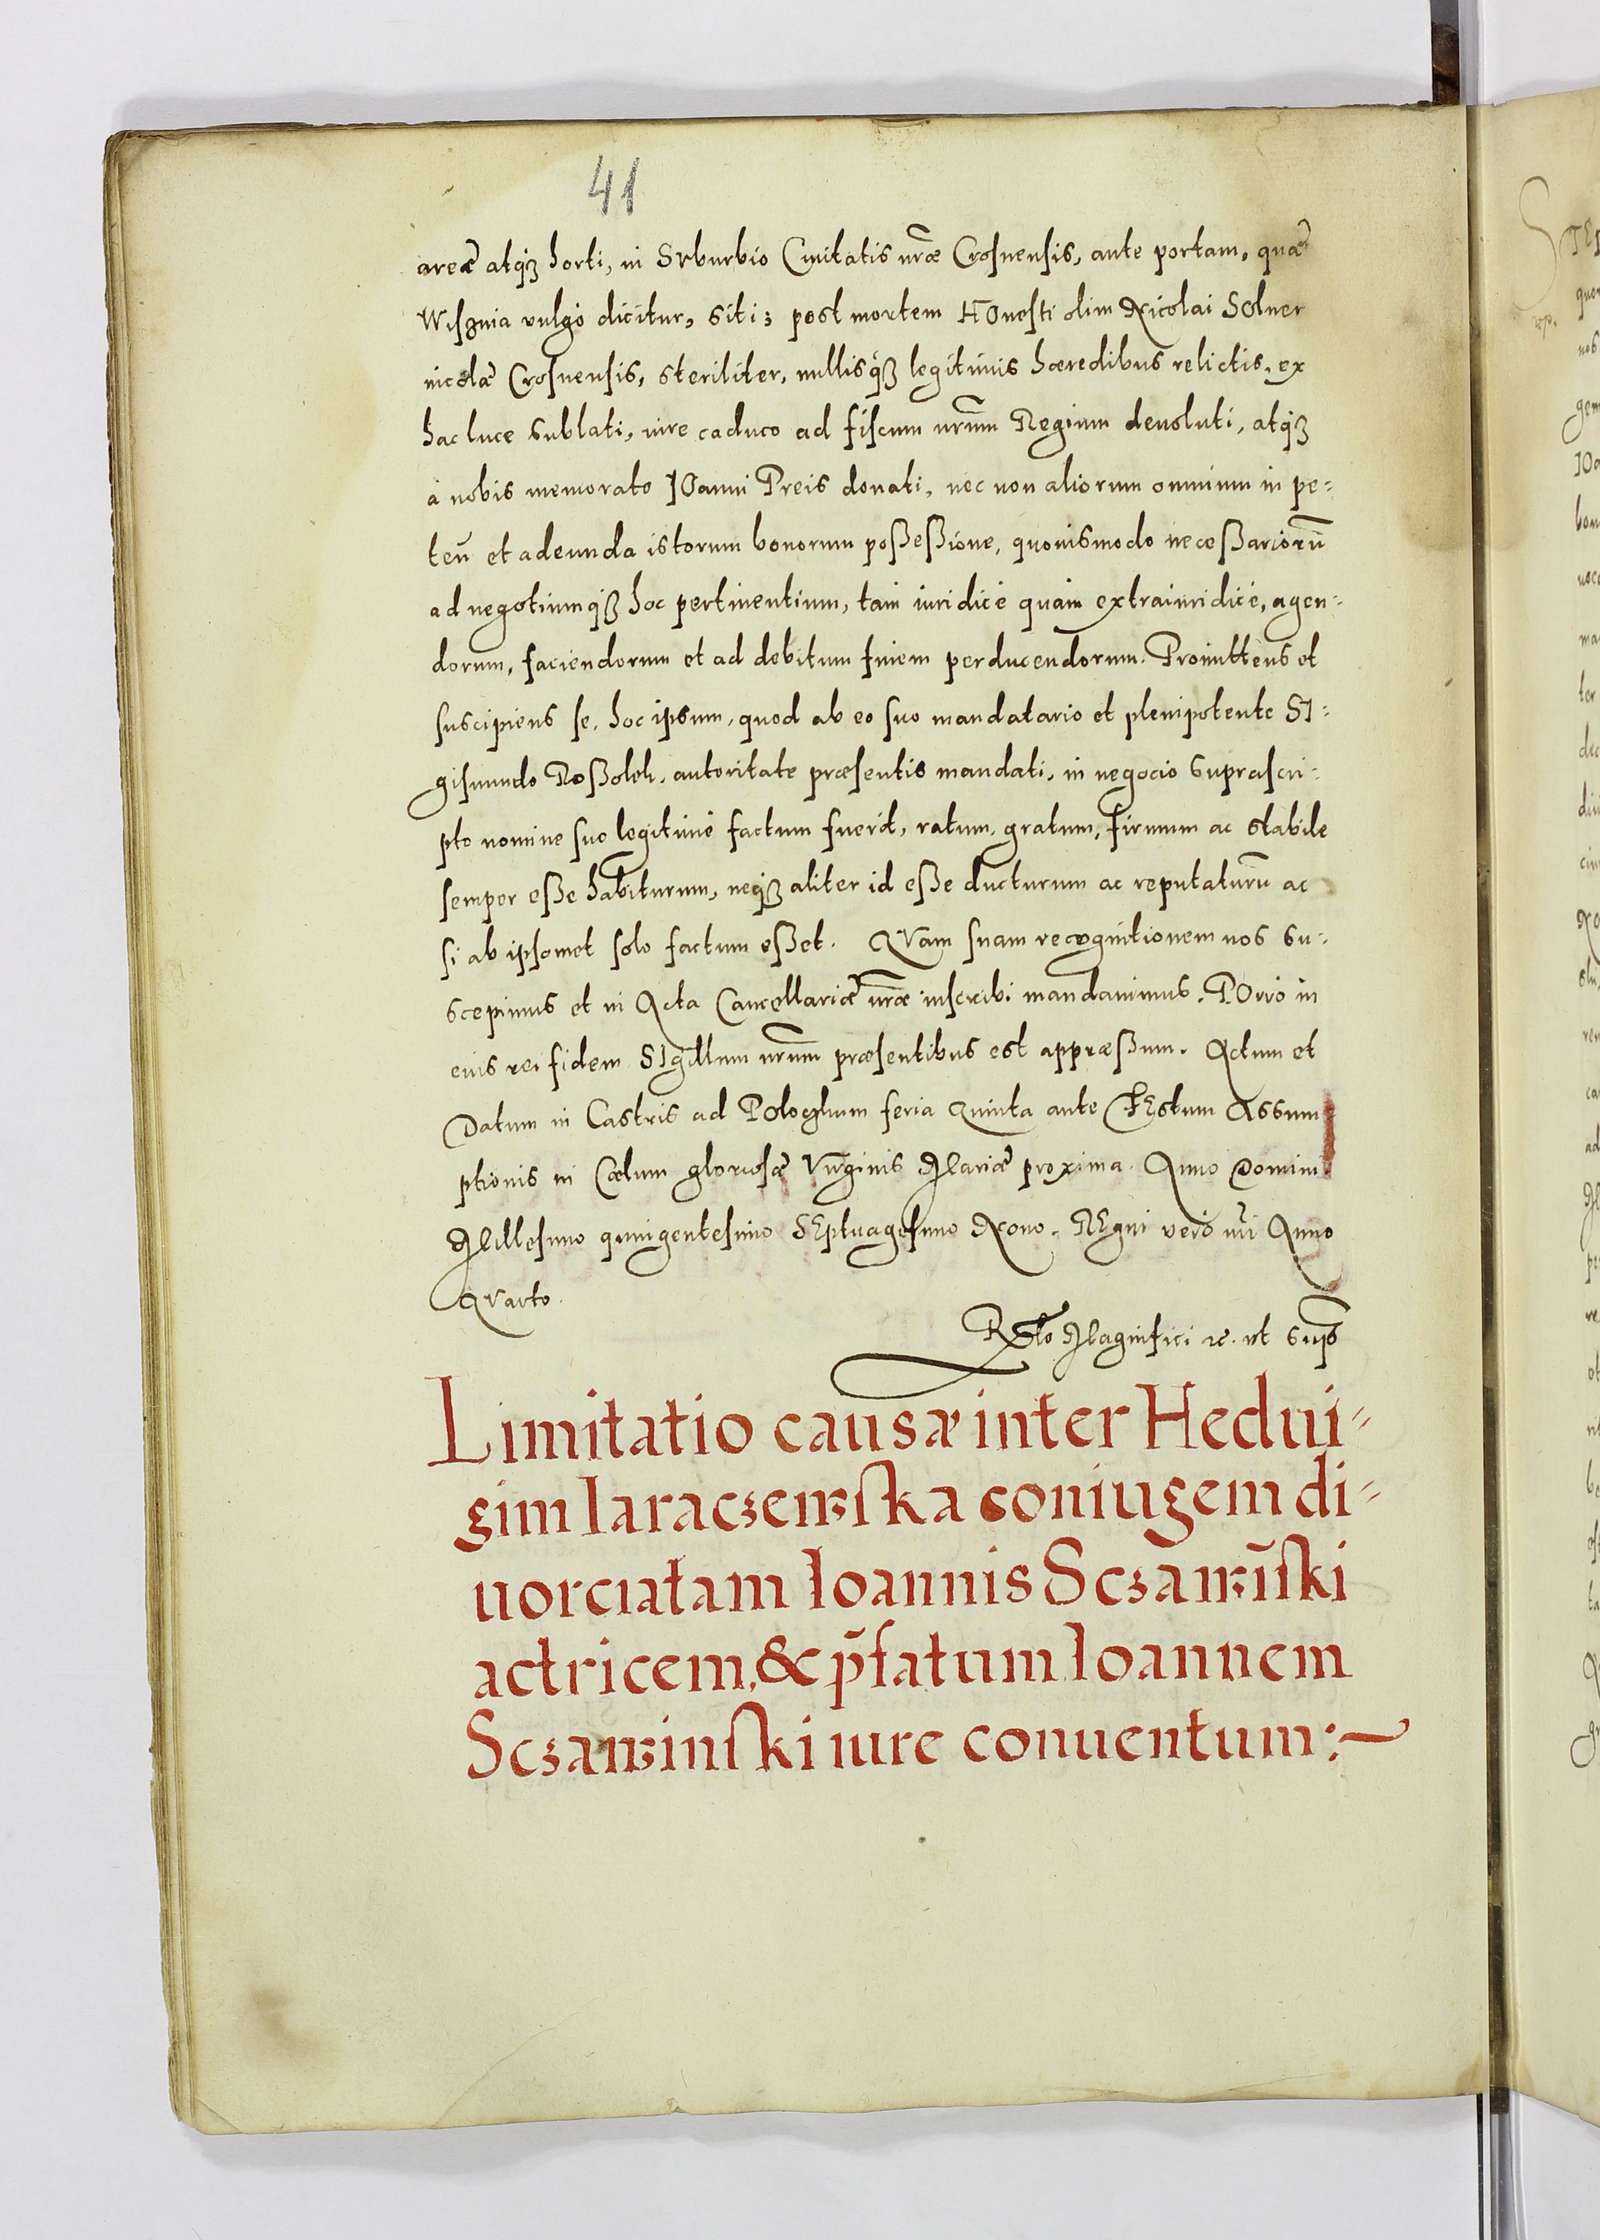 41
areæ atq3 horti, in SVburbio Ciuitatis nr̃æ Crosnensis, ante portam, quæ
Wisznia vulgò dicitur, siti; post mortem HOnesti olim Nicolai SOlner
incolæ Crosnensis, steriliter, nullisq3 legitimis hæredibus relictis, ex
hac luce sublati, iure caduco ad fiscum nr̃um Regium deuoluti, atq3
à nobis memorato IOanni Preis donati, nec non aliorum omnium in pe-
ten̄ et adeunda istorum bonorum poßeßione, quouismodo neceßariorū
ad negotiumq3 hoc pertinentium, tam iuridicè quam extraiuridicè, agen-
dorum, faciendorum et ad debitum finem perducendorum. Promittens et
suscipiens se, hoc ipsum, quod ab eo suo mandatario et plenipotente SI-
gismundo Roßolek, autoritate præsentis mandati, in negocio suprascri-
pto nomine suo legitimè factum fuerit, ratum, gratum, firmum ac stabile
semper eße habiturum, neq3 aliter id eße ducturum ac reputaturū ac
si ab ipsomet solo factum eßet. QVam suam recognitionem nos su-
scepimus et in Acta Cancellariæ nr̃æ inscribi mandauimus. POrrò in
eius rei fidem SIgillum nr̃um præsentibus est appræßum. Actum et
Datum in Castris ad Polocghum feria Quinta ante FEstum Assum
ptionis in Cœlum gloriosæ Virginis Mariæ proxima. Anno Domini
Millesimo quingentesimo SEptuagesimo Nono. REgni verò nr̃i Anno
QVarto.
Rlõ Magnifici &c. vt sup̃
Limitatio causæ inter Hedui-
gim Iaraczewska coniugem di-
uorciatam Ioannis Sczawīski
actricem, & p̄fatum Ioannem
Sczawinski iure conuentum:~